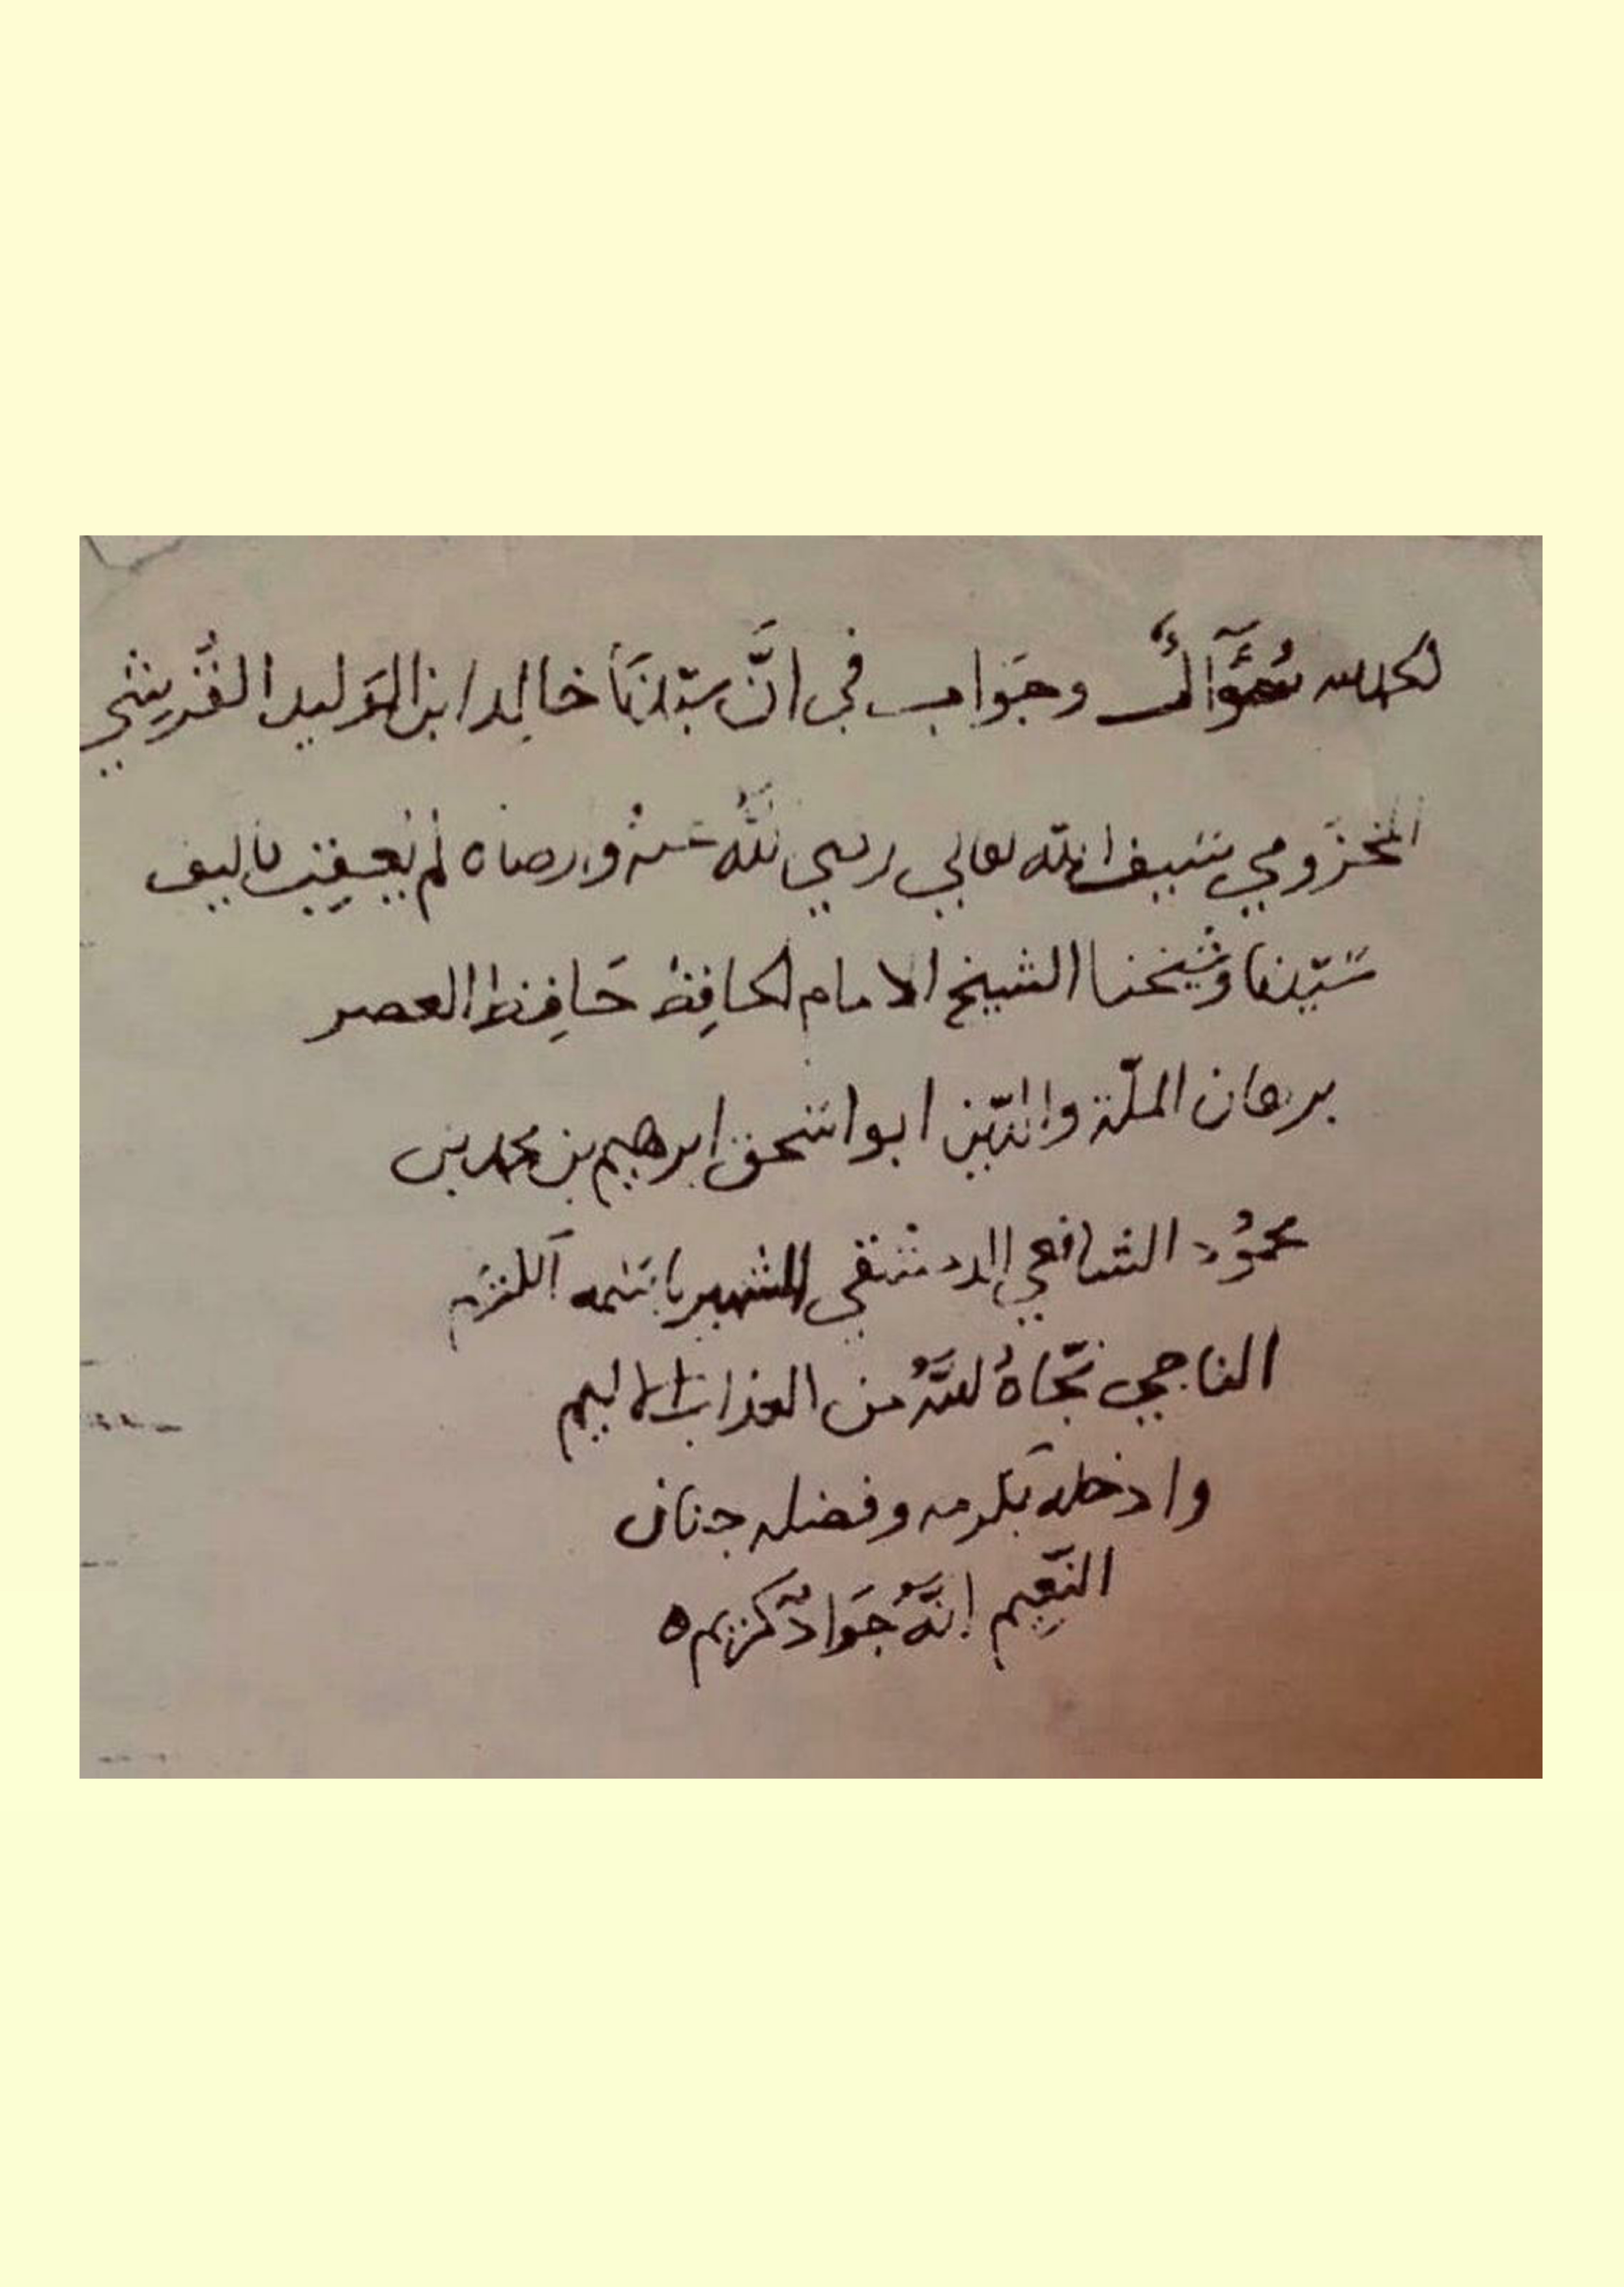 الحمد لله سُؤَآلٌ وجَوابٌ في انَّ سيّدنَا خالِد ابن الوَليد القُرَيشي
المخزَومي سَيف الله تعالي رضي اللَّهُ عنهُ وارضاه لم يُعِقِب تاليف
سَيّدنا وشيخنا الشيخ الامام الحافِظ حَافِظ العصر
برهان الملّة والدّين ابو اسَحق ابرهيم بن محمد بن
محمُود الشافعي الدمشقي الشهير باسَمه
الناجي نجّاهُ اللَّهُ من العذاب الاليم
وادخله بكرمه وفضله جنان
النّعِيم انَّهُ جَوَادٌ كريم ه